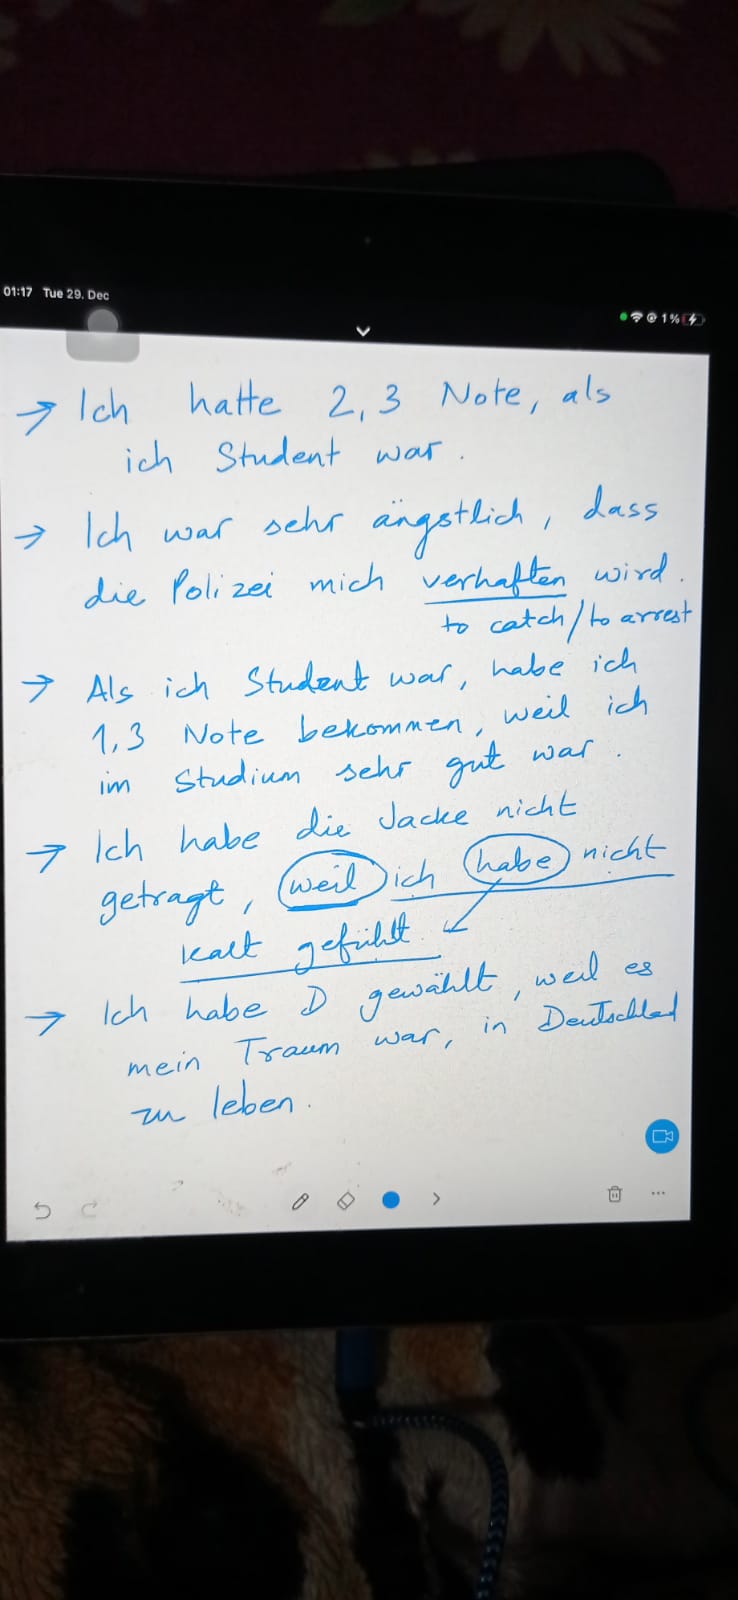 01:17 Tue 29. Dec
1%
→ Ich hatte 2,3 Note, als
ich Student war.
→ Ich war sehr ängstlich, dass
die Polizei mich verhaften wird.
to catch/to arrest
→ Als ich Student war, habe ich
1,3 Note bekommen, weil ich
im Studium sehr gut war.
→ Ich habe die Jacke nicht
getragt, weil ich habe nicht
kalt gefühlt.
→ Ich habe D gewählt, weil es
mein Traum war, in Deutschlad
zu leben.